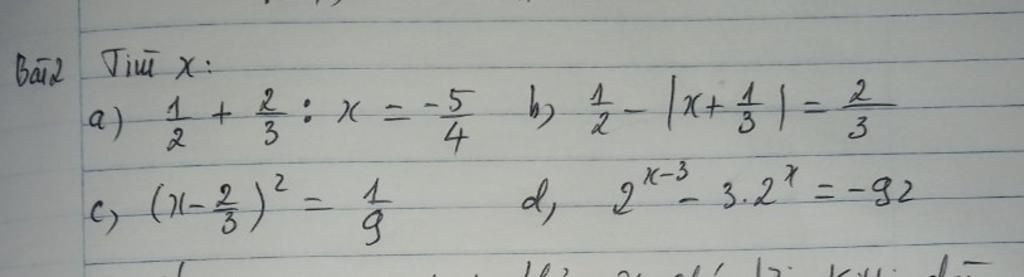 Bài 2 Tìm x:
a) 1/2 + 2/3 : x = -5/4 b) 1/2 - |x + 1/3| = 2/3
c) (x - 2/3)² = 1/9 d, 2^(x-3) - 3.2^x = -92